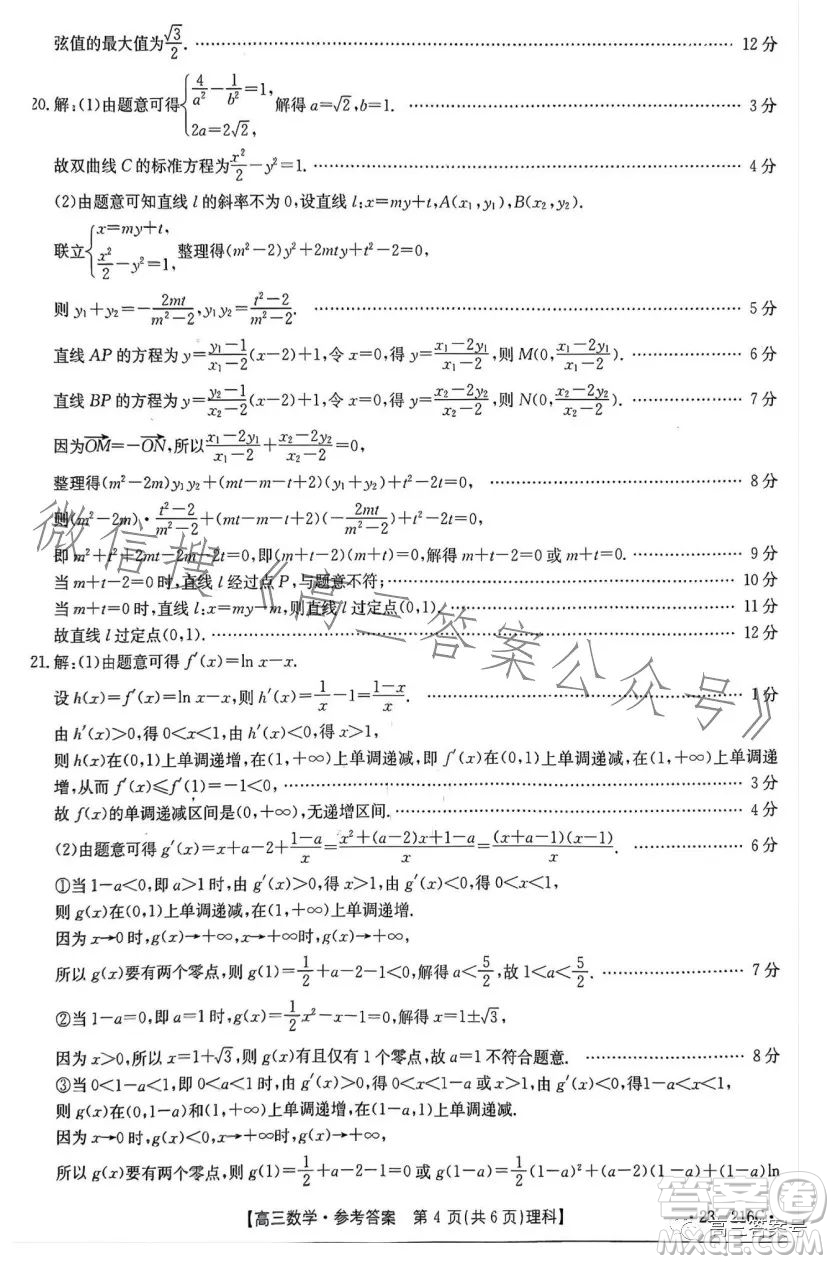 弦值的最大值为√3/2. …… 12分
20. 解:(1)由题意可得{4/a²-1/b²=1, 2a=2√2, 解得a=√2,b=1. …… 3分
故双曲线C的标准方程为x²/2-y²=1. …… 4分
(2)由题意可知直线l的斜率不为0,设直线l:x=my+t,A(x₁,y₁),B(x₂,y₂).
联立{x=my+t, x²/2-y²=1, 整理得(m²-2)y²+2mty+t²-2=0,
则y₁+y₂=-2mt/(m²-2),y₁y₂=(t²-2)/(m²-2). …… 5分
直线AP的方程为y=(y₁-1)/(x₁-2)(x-2)+1,令x=0,得y=(x₁-2y₁)/(x₁-2),则M(0,(x₁-2y₁)/(x₁-2)). …… 6分
直线BP的方程为y=(y₂-1)/(x₂-2)(x-2)+1,令x=0,得y=(x₂-2y₂)/(x₂-2),则N(0,(x₂-2y₂)/(x₂-2)). …… 7分
因为OM→=-ON→,所以(x₁-2y₁)/(x₁-2)+(x₂-2y₂)/(x₂-2)=0,
整理得(m²-2m)y₁y₂+(mt-m-t+2)(y₁+y₂)+t²-2t=0, …… 8分
则(m²-2m)·(t²-2)/(m²-2)+(mt-m-t+2)(-2mt/(m²-2))+t²-2t=0,
即m²+t²+2mt-2m-2t=0,即(m+t-2)(m+t)=0,解得m+t-2=0或m+t=0. …… 9分
当m+t-2=0时,直线l经过点P,与题意不符; …… 10分
当m+t=0时,直线l:x=my-m,则直线l过定点(0,1). …… 11分
故直线l过定点(0,1). …… 12分
21. 解:(1)由题意可得f′(x)=ln x-x.
设h(x)=f′(x)=ln x-x,则h′(x)=1/x-1=(1-x)/x. …… 1分
由h′(x)>0,得0<x<1,由h′(x)<0,得x>1,
则h(x)在(0,1)上单调递增,在(1,+∞)上单调递减,即f′(x)在(0,1)上单调递增,在(1,+∞)上单调递
增,从而f′(x)≤f′(1)=-1<0, …… 3分
故f(x)的单调递减区间是(0,+∞),无递增区间. …… 4分
(2)由题意可得g′(x)=x+a-2+(1-a)/x=(x²+(a-2)x+1-a)/x=(x+a-1)(x-1)/x. …… 6分
①当1-a<0,即a>1时,由g′(x)>0,得x>1,由g′(x)<0,得0<x<1,
则g(x)在(0,1)上单调递减,在(1,+∞)上单调递增.
因为x→0时,g(x)→+∞,x→+∞时,g(x)→+∞,
所以g(x)要有两个零点,则g(1)=1/2+a-2-1<0,解得a<5/2,故1<a<5/2. …… 7分
②当1-a=0,即a=1时,g(x)=1/2x²-x-1=0,解得x=1±√3,
因为x>0,所以x=1+√3,则g(x)有且仅有1个零点,故a=1不符合题意. …… 8分
③当0<1-a<1,即0<a<1时,由g′(x)>0,得0<x<1-a或x>1,由g′(x)<0,得1-a<x<1,
则g(x)在(0,1-a)和(1,+∞)上单调递增,在(1-a,1)上单调递减.
因为x→0时,g(x)<0,x→+∞时,g(x)→+∞,
所以g(x)要有两个零点,则g(1)=1/2+a-2-1=0或g(1-a)=1/2(1-a)²+(a-2)(1-a)+(1-a)ln
【高三数学·参考答案 第4页(共6页)理科】
·23-216C·
微信搜《高三答案公众号》
高三答案号